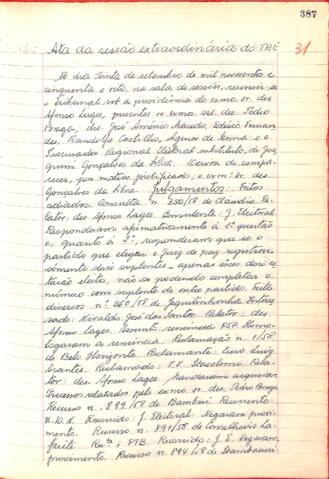 387
Ata da sessão extraordinária do TRE
31
No dia trinta de setembro de mil novecentos e
cinquenta e oito, na sala de sessões, reuniu-se
o Tribunal sob a presidência do exmo. sr. des.
Afonso Lages, presentes os exmos. srs. des. Pedro
Braga, drs. José Américo Macedo, Edésio Fernan
des, Randolfo Castilho, Agenor de Senna e o
Procurador Regional Eleitoral substituto, dr. Joa
quim Gonçalves da Silva. Deixou de compa-
recer, por motivo justificado, o exmo. sr. des.
Gonçalves da Silva. Julgamentos: Feitos
adiados. Consulta n. 350/58 de Claudio. Re
lator: des. Afonso Lages. Consulente: J. Eleitoral.
Responderam afirmativamente à 1ª questão
e, quanto à 2ª, responderam que se o
partido que elegeu o juiz de paz registrou
somente dois suplentes, apenas esses dois es
tarão eleitos, não se podendo completar o
número com suplente de outro partido. Feitos
diversos n. 360/58 de Jequitinhonha. Interes
sado: Nivaldo José dos Santos. Relator: des.
Afonso Lages. Assunto: renúncia PSP. Homo-
logaram a renúncia. Reclamação n. 1/58
de Belo Horizonte. Reclamante: Euro Luiz
Arantes. Reclamado: T.V. Itacolomi. Rela
tor: des. Afonso Lages. Mandaram arquivar.
Processos relatados pelo exmo. sr. des. Pedro Braga
Recurso n. 899/58 de Bambuí. Recorrente:
U.D.N. Recorrido: J. Eleitoral. Negaram provi-
mento. Recurso n. 891/58 de Conselheiro La-
faiete. Rcte: PTB. Recorrido: J.E. Negaram
provimento. Recurso n. 894/58 de Itambacuri